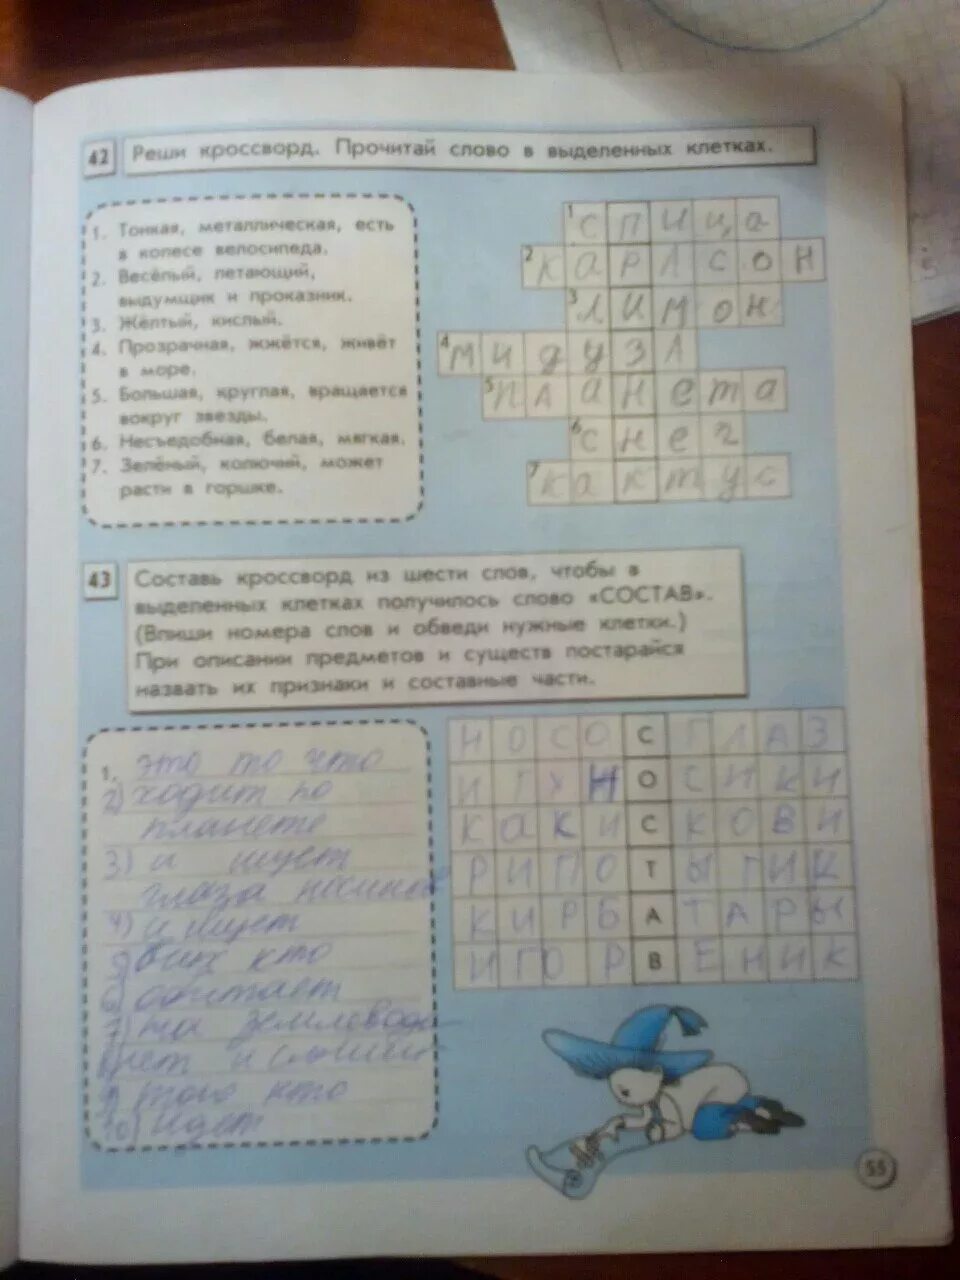 42 Реши кроссворд. Прочитай слово в выделенных клетках.
1. Тонкая, металлическая, есть
в колесе велосипеда.
2. Весёлый, летающий,
выдумщик и проказник.
3. Жёлтый, кислый.
4. Прозрачная, жжётся, живёт
в море.
5. Большая, круглая, вращается
вокруг звезды.
6. Несъедобная, белая, мягкая.
7. Зелёный, колючий, может
расти в горшке.
1 спица
2 карлсон
3 лимон
4 медуза
5 планета
6 снег
7 кактус
43 Составь кроссворд из шести слов, чтобы в
выделенных клетках получилось слово «СОСТАВ».
(Впиши номера слов и обведи нужные клетки.)
При описании предметов и существ постарайся
назвать их признаки и составные части.
1. это то что
2) ходит по
планете
3) и ищет
глаза
4) и ищет
кто
обитает
7)
и
9 того кто
10) идет
Н О С О С Г Л А З
И Г У Н О С И К И
К А К И С К О В И
Р И П О Т Ы Г И К
К И Р Б А Т А Р Ы
И Г О Р В Е Н И К
55